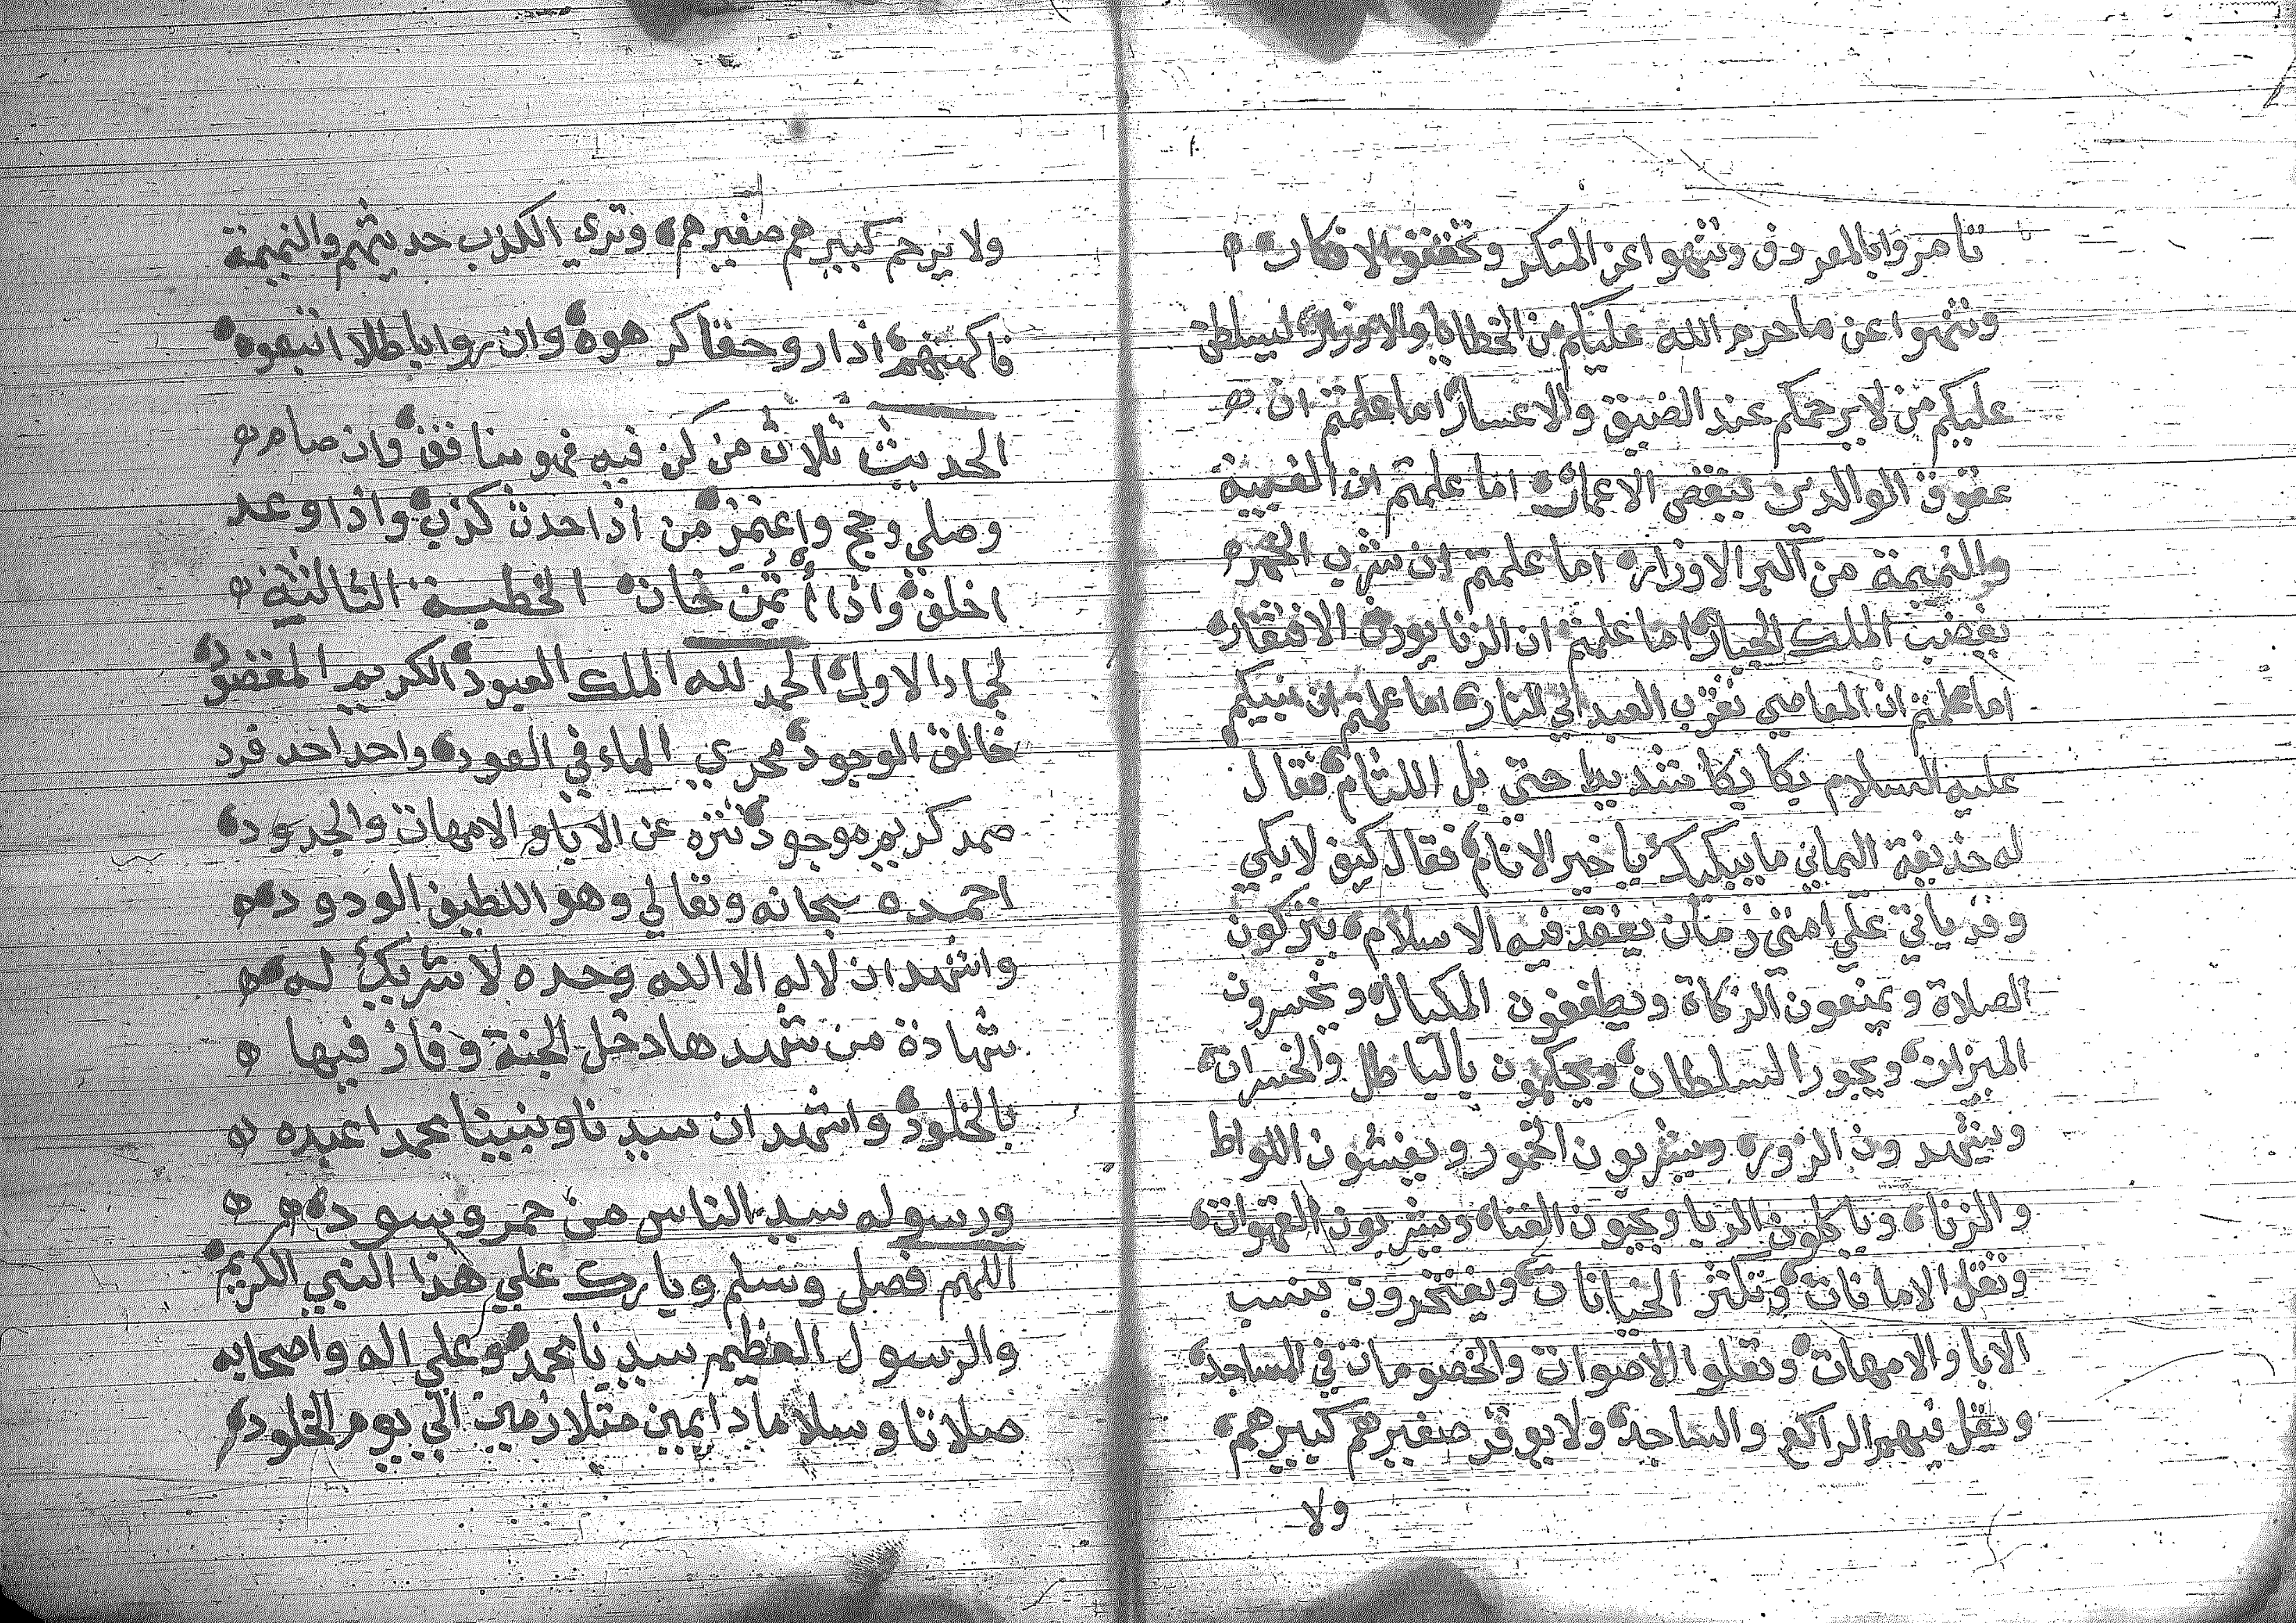 تامروا بالمعروف وتنهوا عن المنكر وتخففوا الافكار
وتنتهوا عن ما حرم الله عليكم من الخطايا والاوزار ليسلطن
عليكم من لا يرحمكم عند الضيق والاعسار اما علمتم ان
عقوق الوالدين ينقص الاعمار اما علمتم ان الغيبة
والنميمة من اكبر الاوزار اما علمتم ان شرب الخمر
يغضب الملك الجبار اما علمتم ان الزنا يورث الافتقار
اما علمتم ان المعاصي تقرب العبد الي النار اما علمتم ان نبيكم
عليه السلام بكا بكا شديدا حتي بل اللثام فقال
له حذيفة اليماني ما يبكيك يا خير الانام فقال كيف لا ابكي
وقد ياتي علي امتي زمان يفقد فيه الاسلام يتركون
الصلاة ويمنعون الزكاة ويطففون المكيال ويخسرون
الميزان ويجور السلطان ويحكمون بالباطل والخسران
ويشهدون الزور ويشربون الخمور ويفشون اللواط
والزنا وياكلون الربا ويحبون الغنا ويشربون القهوات
وتقل الامانات وتكثر الخيانات ويفتخرون بنسب
الابا والامهات وتعلوا الاصوات والخصومات في المساجد
ويقل فيهم الراكع والساجد ولا يوقر صغيرهم كبيرهم
ولا
ولا يرحم كبيرهم صغيرهم وتري الكذب حديثهم والنميمة
فاكهتهم اذا راو حقا كرهوه وان روا باطلا اتبعوه
الحديث ثلاث من كن فيه فهو منافق وان صام
وصلي وحج واعتمر من اذا حدث كذب واذا وعد
اخلف واذا أتمن خان الخطبة الثالثية
لجماد الاول الحمد لله الملك العبود الكريم المقصود
خالق الوجود مجري الماء في العود واحد احد فرد
صمد كريم موجود تنزه عن الابا والامهات والجدود
احمده سبحانه وتعالي وهو اللطيف الودود
واشهد ان لا له الا الله وحده لا شريك له
شهادة من شهد ها دخل الجنة وفاز فيها
بالخلود واشهد ان سيدنا ونبينا محمدا عبده
ورسوله سيد الناس من حمر وسود
اللهم فصل وسلم وبارك علي هذا النبي الكريم
والرسول العظيم سيدنا محمد وعلي اله واصحابه
صلاتا وسلاما دايمين متلازمين الي يوم الخلود